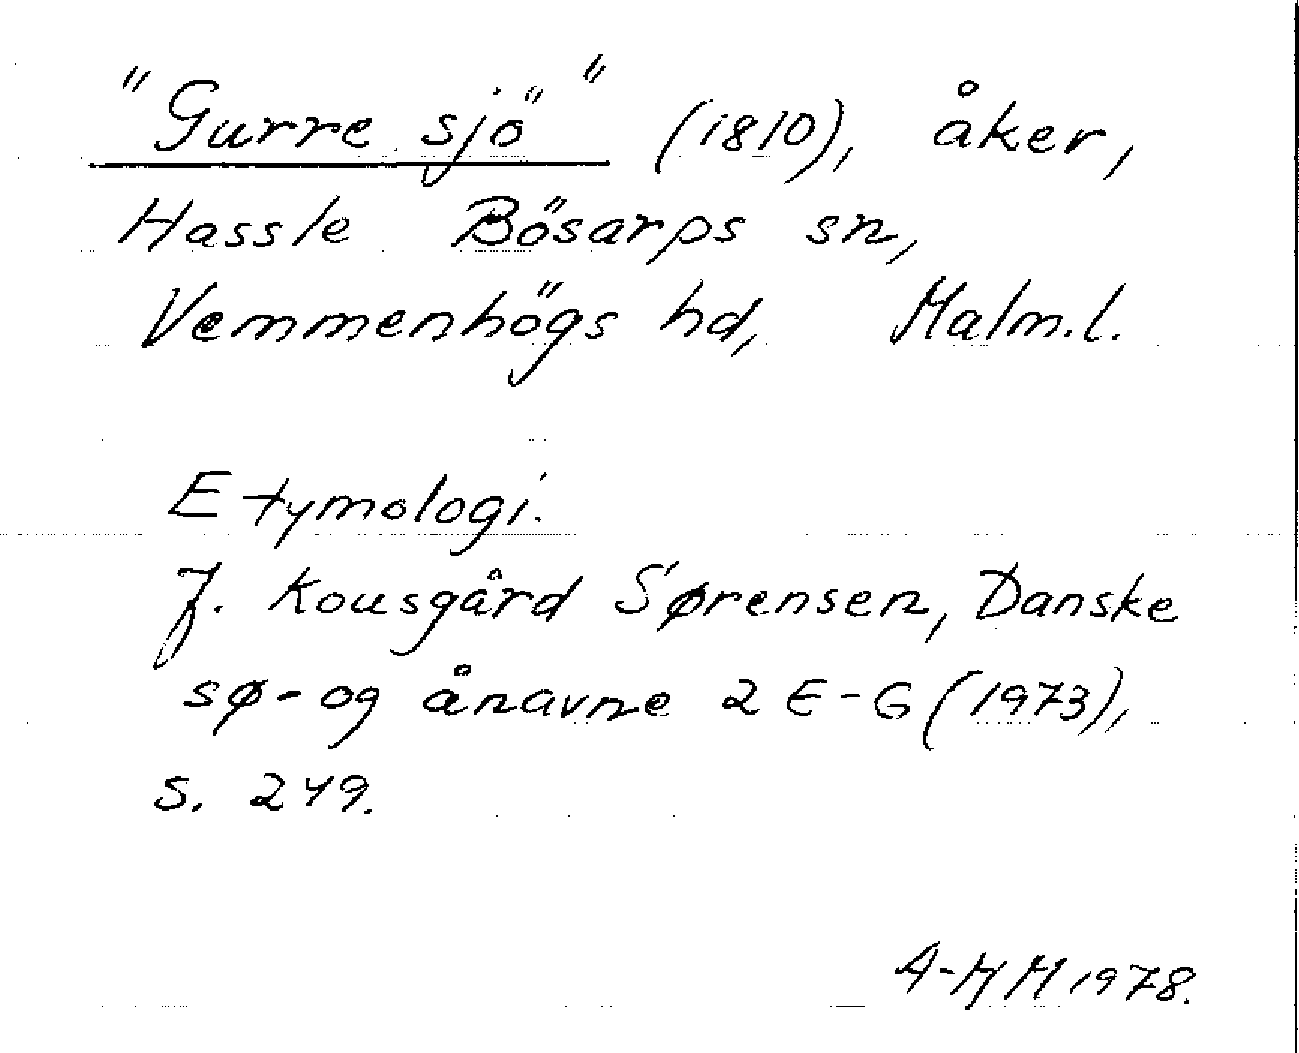 "Gurre sjö" (1810), åker,
Hassle Bösarps sn,
Vemmenhögs hd, Malm.l.
Etymologi.
J. Kousgård Sørensen, Danske
sø- og ånavne 2 E-G (1973),
s. 249.
A-HM 1978.